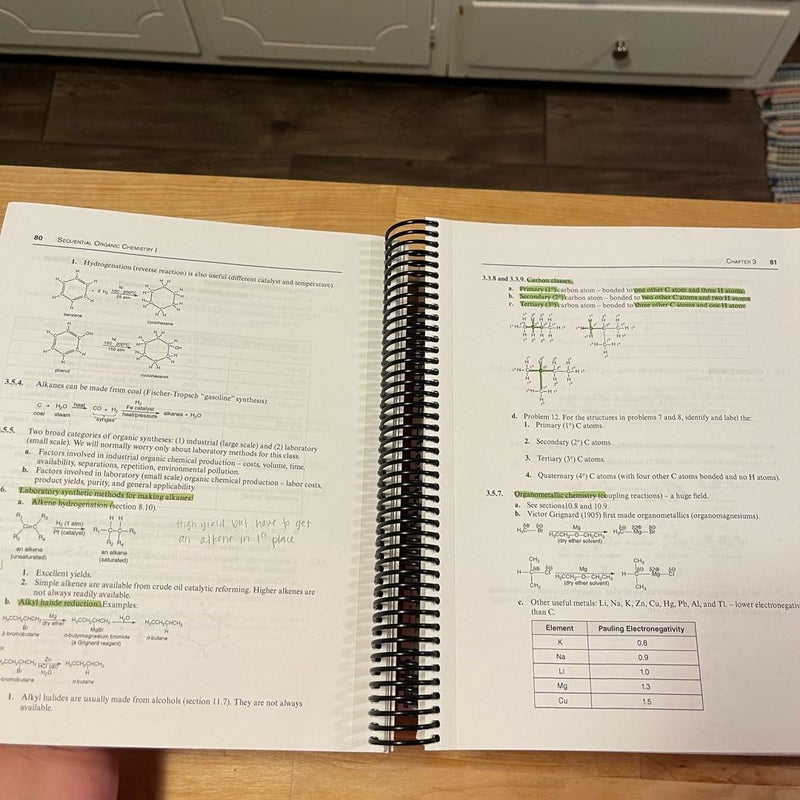 80 SEQUENTIAL ORGANIC CHEMISTRY I
1. Hydrogenation (reverse reaction) is also useful (different catalyst and temperature).
+ 3 H₂ Ni 150 - 200°C 25 atm
benzene cyclohexane
OH Ni 150 - 200°C 150 atm OH
phenol cyclohexanol
3.5.4. Alkanes can be made from coal (Fischer-Tropsch "gasoline" synthesis):
C + H₂O heat CO + H₂ H₂ Fe catalyst heat/pressure alkanes + H₂O
coal steam "syngas"
5.5. Two broad categories of organic syntheses: (1) industrial (large scale) and (2) laboratory
(small scale). We will normally worry only about laboratory methods for this class.
a. Factors involved in industrial organic chemical production – costs, volume, time,
availability, separations, repetition, environmental pollution.
b. Factors involved in laboratory (small scale) organic chemical production – labor costs,
product yields, purity, and general applicability.
6. Laboratory synthetic methods for making alkanes
a. Alkene hydrogenation (section 8.10).
H₂ (1 atm)
Pt (catalyst)
High yield but have to get
an alkene in 1º place
an alkene an alkane
(unsaturated) (saturated)
1. Excellent yields.
2. Simple alkenes are available from crude oil catalytic reforming. Higher alkenes are
not always readily available.
b. Alkyl halide reduction. Examples:
H₃CCHCH₂CH₃ Mg dry ether H₃CCHCH₂CH₃ H₂O H₃CCHCH₂CH₃
Br MgBr H
2-bromobutane n-butylmagnesium bromide n-butane
(a Grignard reagent)
or
H₃CCHCH₂CH₃ Zn HCl (aq) H₂O H₃CCHCH₂CH₃
Br H
-bromobutane n-butane
1. Alkyl halides are usually made from alcohols (section 11.7). They are not always
available.
CHAPTER 3 81
3.3.8 and 3.3.9. Carbon classes.
a. Primary (1°) carbon atom – bonded to one other C atom and three H atoms.
b. Secondary (2°) carbon atom – bonded to two other C atoms and two H atoms
c. Tertiary (3°) carbon atom – bonded to three other C atoms and one H atom.
d. Problem 12. For the structures in problems 7 and 8, identify and label the:
1. Primary (1°) C atoms.
2. Secondary (2°) C atoms.
3. Tertiary (3°) C atoms.
4. Quaternary (4°) C atoms (with four other C atoms bonded and no H atoms).
3.5.7. Organometallic chemistry (coupling reactions) – a huge field.
a. See sections10.8 and 10.9.
b. Victor Grignard (1905) first made organometallics (organomagnesiums).
H₃C Br Mg H₃CCH₂–O–CH₂CH₃ (dry ether solution) H₃C Mg Br
CH₃ CH₃
H C Cl Mg H₃CCH₂–O–CH₂CH₃ (dry ether solution) H C Mg Cl
CH₃ CH₃
c. Other useful metals: Li, Na, K, Zn, Cu, Hg, Pb, Al, and Tl. – lower electronegative
than C.
Element Pauling Electronegativity
K 0.8
Na 0.9
Li 1.0
Mg 1.3
Cu 1.5